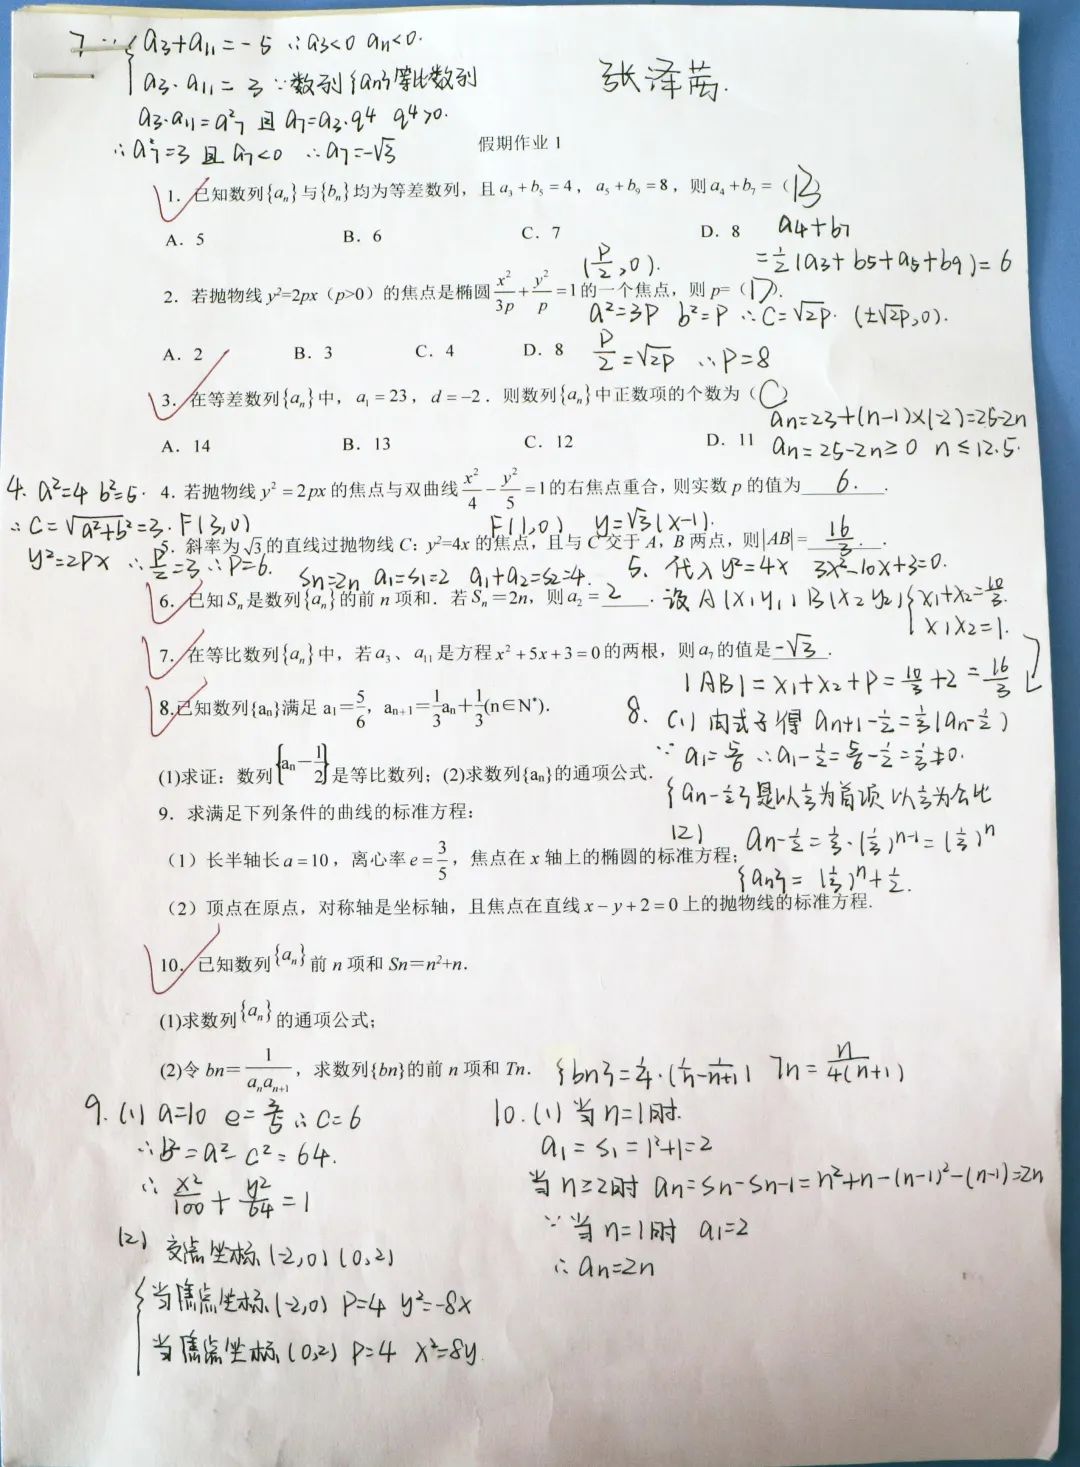 7 ∵ {a₃+a₁₁=-5 ∴a₃<0 aₙ<0.
a₃·a₁₁=3 ∵数列{aₙ}等比数列
张泽茜.
a₃·a₁₁=a²₇ 且 a₇=a₃·q⁴ q⁴>0.
∴a²₇=3 且 a₇<0 ∴a₇=-√3
假期作业 1
1. 已知数列{aₙ}与{bₙ}均为等差数列，且a₃+b₅=4，a₅+b₉=8，则a₄+b₇=（B）
A. 5 B. 6 C. 7 D. 8
a₄+b₇
=½(a₃+b₅+a₅+b₉)=6
(p/2,0).
2. 若抛物线 y²=2px（p>0）的焦点是椭圆x²/3p+y²/p=1的一个焦点，则 p=（D）.
a²=3p b²=p ∴C=√2p. (±√2p,0).
A. 2 B. 3 C. 4 D. 8
p/2=√2p ∴p=8
3. 在等差数列{aₙ}中，a₁=23，d=-2．则数列{aₙ}中正数项的个数为（C）
aₙ=23+(n-1)×(-2)=25-2n
A. 14 B. 13 C. 12 D. 11
aₙ=25-2n≥0 n≤12.5.
4. 若抛物线 y²=2px 的焦点与双曲线x²/4-y²/5=1的右焦点重合，则实数 p 的值为 6. .
4. a²=4 b²=5.
∴C=√a²+b²=3. F(3,0)
y²=2px ∴p/2=3 ∴p=6.
F(1,0) y=√3(x-1).
5. 斜率为√3的直线过抛物线 C: y²=4x 的焦点，且与 C 交于 A，B 两点，则|AB|= 16/3 .
Sn=2n a₁=S₁=2 a₁+a₂=S₂=4.
5、代入y²=4x 3x²-10x+3=0.
6. 已知Sₙ是数列{aₙ}的前 n 项和．若Sₙ=2n，则a₂= 2 .
设A(x₁y₁) B(x₂y₂) {x₁+x₂=10/3.
x₁x₂=1.
7. 在等比数列{aₙ}中，若a₃、a₁₁是方程x²+5x+3=0的两根，则a₇的值是 -√3 .
|AB|=x₁+x₂+p=10/3+2=16/3
8.已知数列{aₙ}满足 a₁=5/6，aₙ₊₁=1/3aₙ+1/3(n∈N*).
(1)求证：数列{aₙ-1/2}是等比数列；(2)求数列{aₙ}的通项公式.
8. (1) 由式子得 aₙ₊₁-½=⅓(aₙ-½)
∵a₁=5/6 ∴a₁-½=5/6-½=⅓≠0.
{aₙ-½}是以⅓为首项 以⅓为公比
(2) aₙ-½=⅓·(⅓)ⁿ⁻¹=(⅓)ⁿ
{aₙ}=(⅓)ⁿ+½.
9. 求满足下列条件的曲线的标准方程：
（1）长半轴长 a=10，离心率 e=3/5，焦点在 x 轴上的椭圆的标准方程；
（2）顶点在原点，对称轴是坐标轴，且焦点在直线 x-y+2=0 上的抛物线的标准方程.
10. 已知数列{aₙ}前 n 项和 Sn=n²+n.
(1)求数列{aₙ}的通项公式；
(2)令 bn=1/aₙaₙ₊₁，求数列{bn}的前 n 项和 Tn.
{bn}=¼·(1/n-1/n+1) Tn=n/4(n+1)
9. (1) a=10 e=3/5 ∴C=6
∴b²=a²-c²=64.
∴x²/100+y²/64=1
(2) 交点坐标(-2,0)(0,2)
{当焦点坐标(-2,0) P=4 y²=-8x
当焦点坐标(0,2) P=4 x²=8y.
10. (1) 当n=1时.
a₁=S₁=1²+1=2
当n≥2时 aₙ=Sn-Sn-1=n²+n-(n-1)²-(n-1)=2n
∵当n=1时 a₁=2
∴aₙ=2n